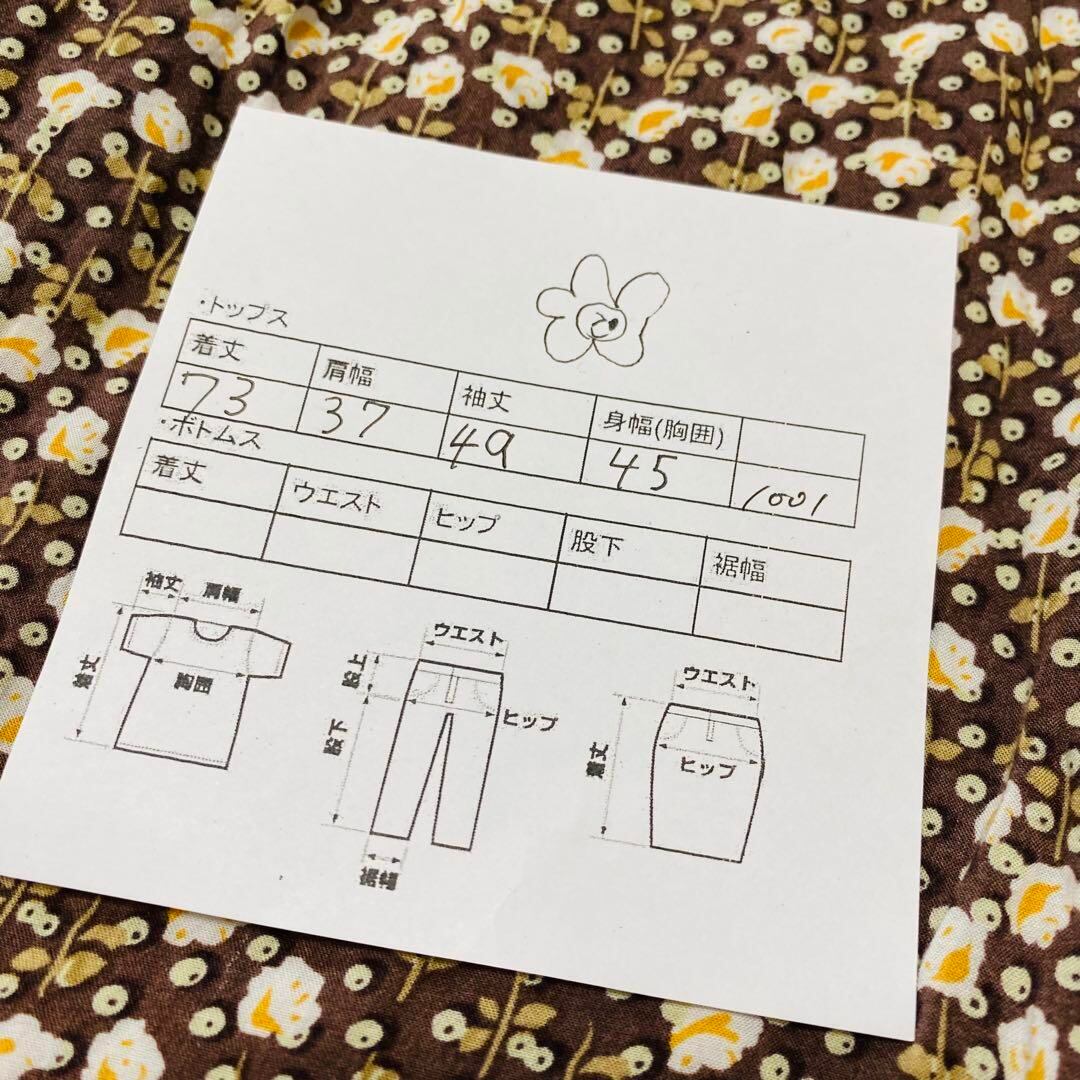 ・トップス
着丈 肩幅 袖丈 身幅(胸囲)
73 37 49 45 1001
・ボトムス
着丈 ウエスト ヒップ 股下 裾幅
袖丈 肩幅
着丈
胸囲
ウエスト
股上
股下
ヒップ
裾幅
ウエスト
着丈
ヒップ